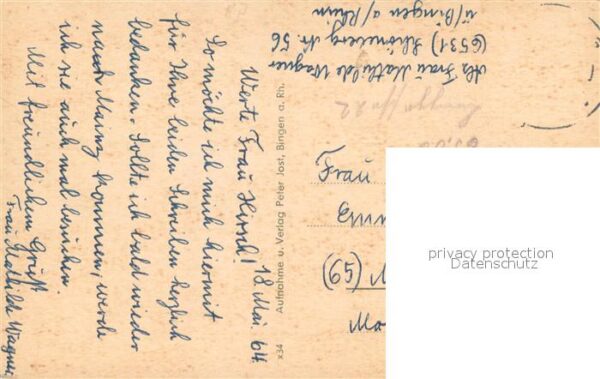 Abs. Frau Mathilde Wagner
(6531) Schöneberg Nr. 56
ü/Bingen a/Rhein
18. Mai. 64.
Werte Frau Hirsch!
So möchte ich mich hiermit
für Ihre beiden Schreiben herzlich
bedanken. Sollte ich bald wieder
nach Mainz kommen, werde
ich sie auch mal besuchen.
Mit freundlichem Gruß
Frau Mathilde Wagner
x34
Aufnahme u. Verlag Peter Jost, Bingen a. Rh.
Frau
(65) M
Ma
privacy protection
Datenschutz